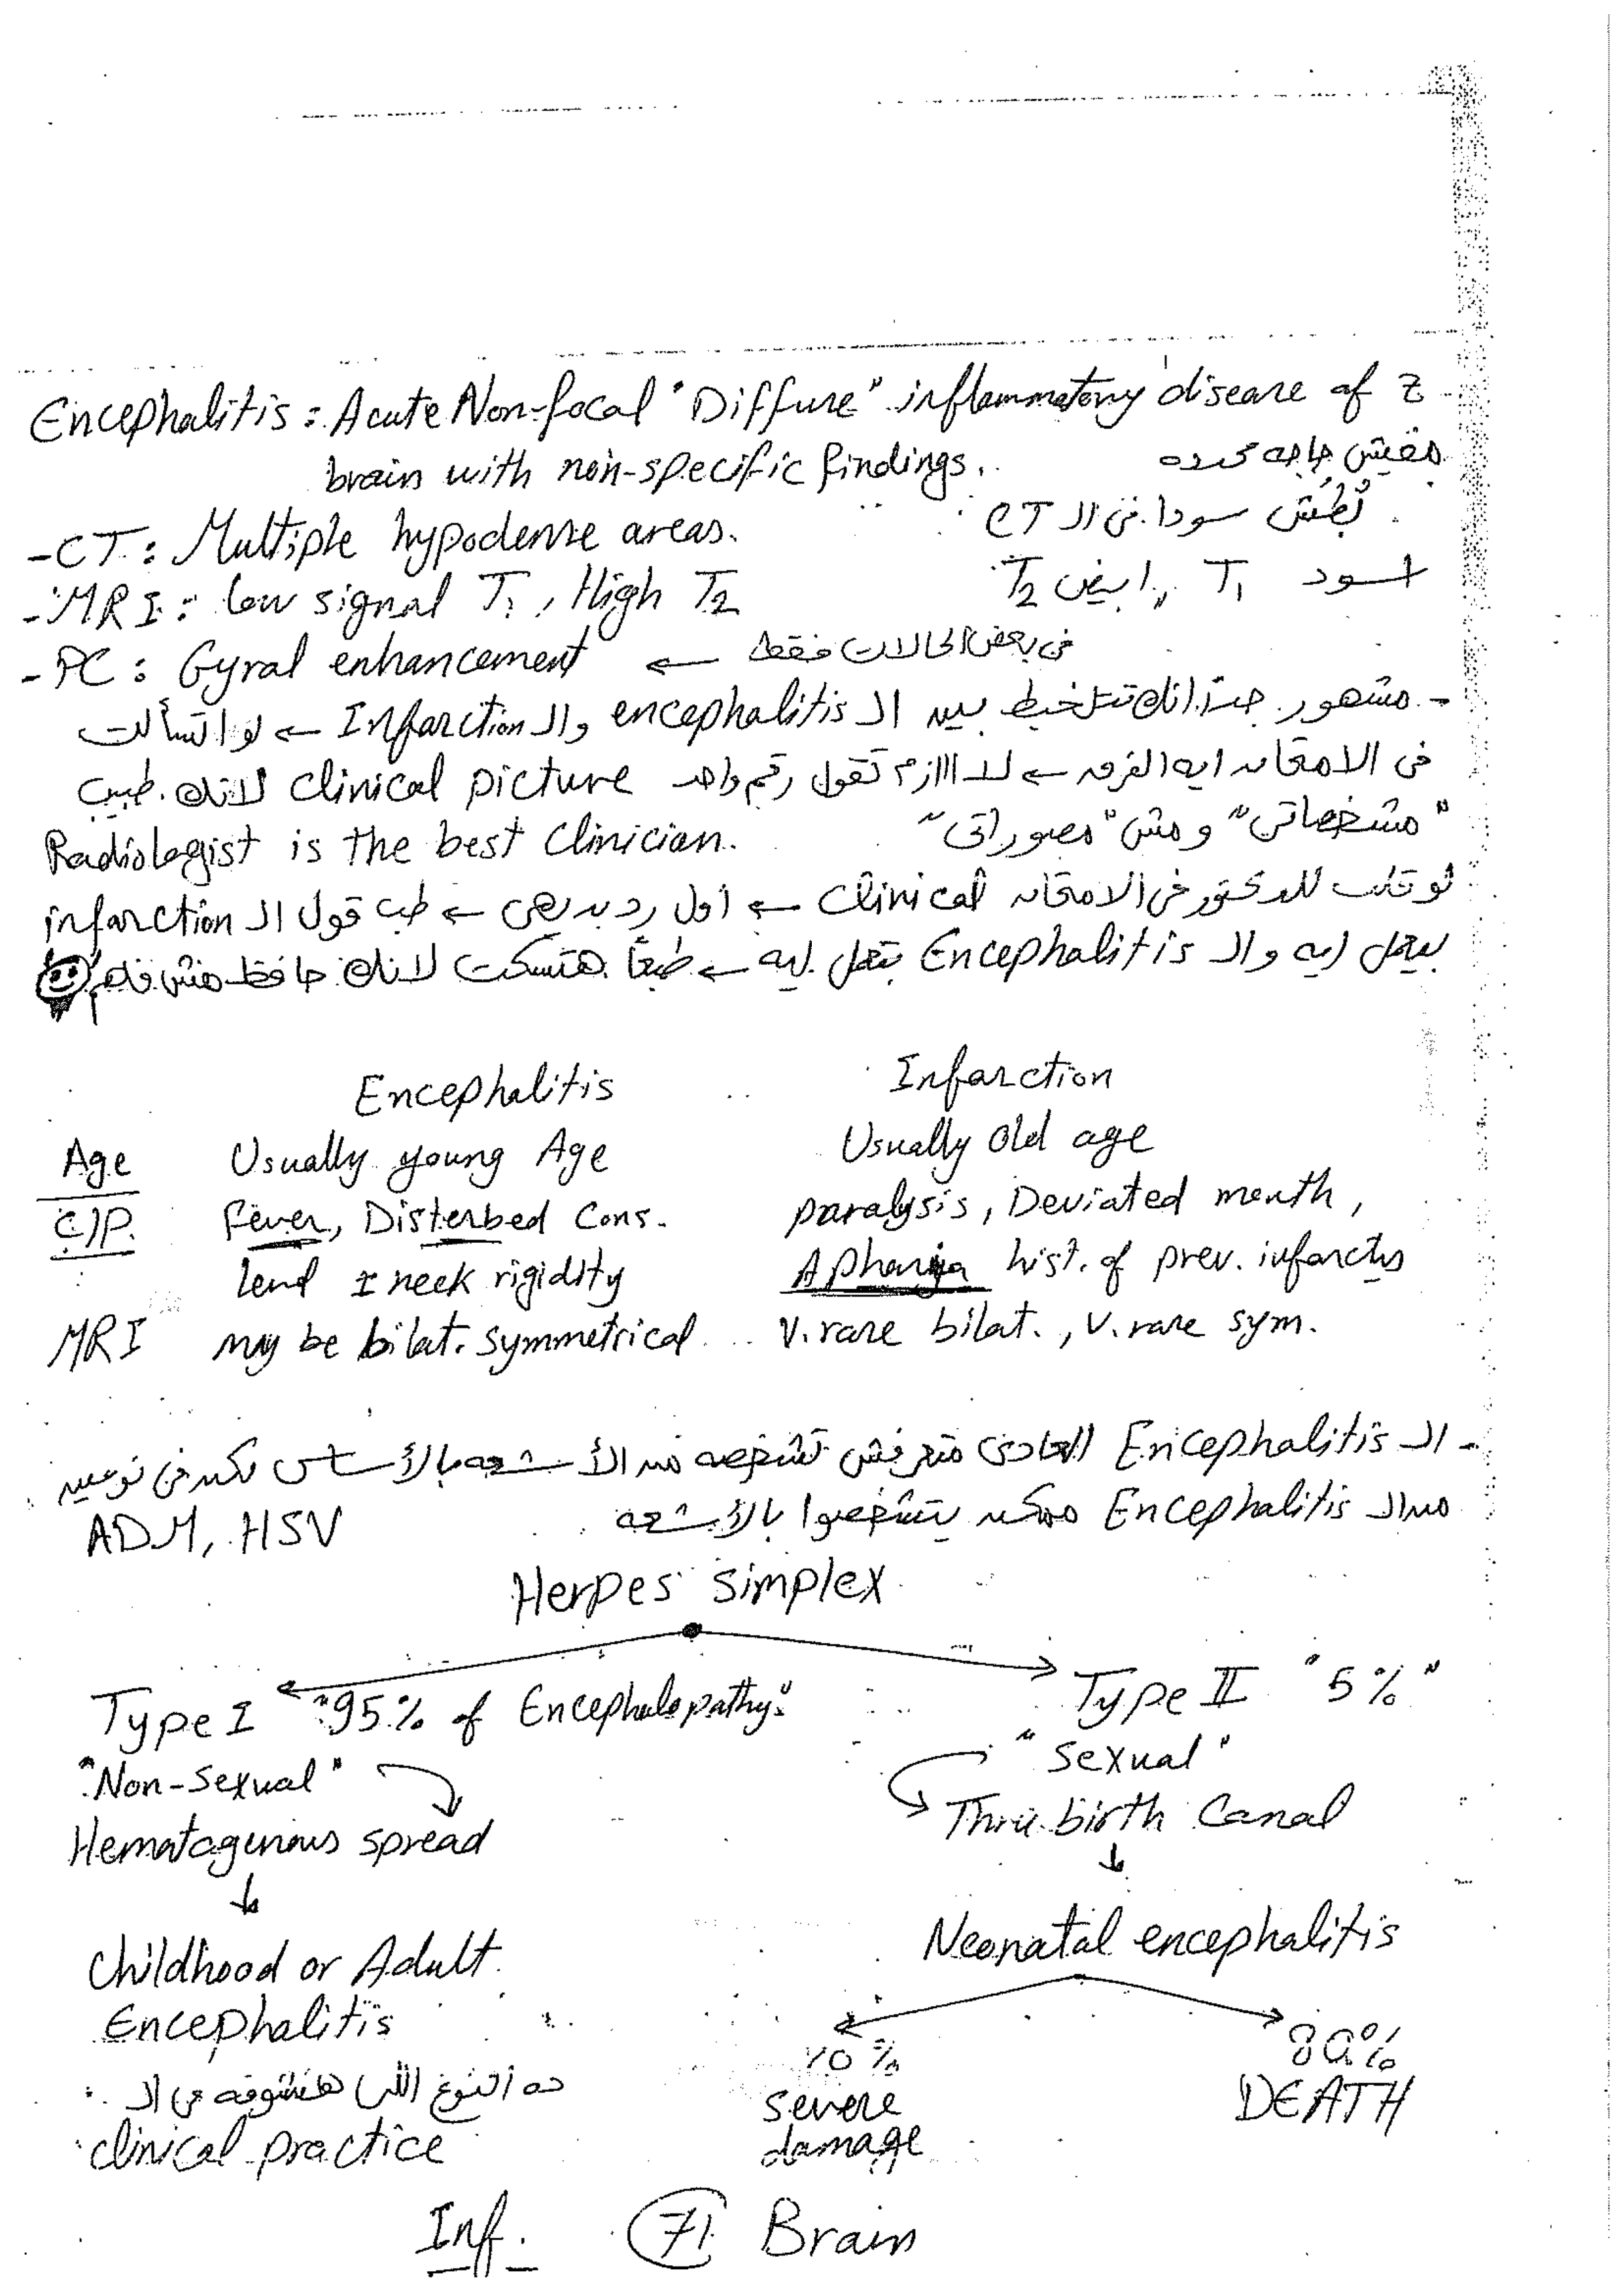 Encephalitis : Acute Non-focal "Diffuse" inflammatory disease of z
brain with non-specific findings.
مفيش حاجه كده
-CT : Multiple hypodense areas.
بُطُش سودا فى الـ CT
-MRI : low signal T1, High T2
اسود T1 ,, ابيض T2
-PC : Gyral enhancement ← فى بعض الحالات فقط
- مشهور جدًا انك تتلخبط بين الـ encephalitis والـ Infarction ← لو اتسألت
فى الامتحان ايه الفرق ← لاااازم تقول رقم واحد clinical picture لانك طبيب
"مشخصاتى" ومش "مصوراتى"
Radiologist is the best Clinician.
لو قلت للدكتور فى الامتحان Clinical ← أول رد بديهى ← طب قول الـ infarction
بيعمل ايه والـ Encephalitis بتعمل ايه ← طبعًا هتسكت لانك حافظ مش فاهم
Encephalitis Infarction
Age Usually young Age Usually Old age
C/P. fever, Disterbed Cons. paralysis, Deviated mouth,
neck rigidity hist. of prev. infarcts
MRI may be bilat. symmetrical V. rare bilat., V. rare sym.
- الـ Encephalitis العادى متعرفش تشخصه من الأشعه بالأساس لكن فى نوعين
من الـ Encephalitis ممكن يتشخصوا بالأشعه
ADM, HSV
Herpes simplex
Type I "95% of Encephalopathy"
Type II "5%"
"Non-Sexual"
"Sexual"
Hematogenous spread
Thru birth Canal
Childhood or Adult
Encephalitis
Neonatal encephalitis
ده النوع اللى هنشوفه فى الـ
clinical practice
severe
damage
80%
DEATH
Inf. 71 Brain